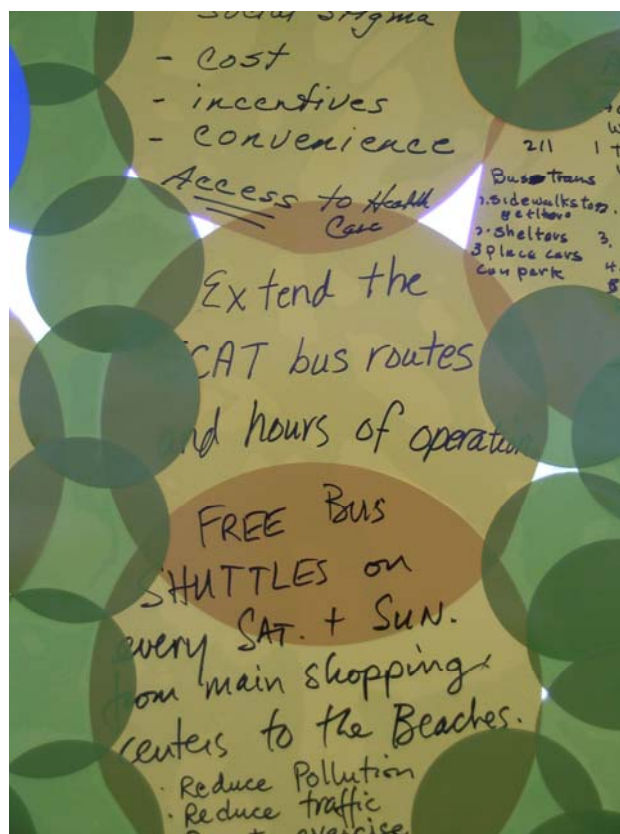 Social Stigma
- Cost
- incentives
- convenience
Access to Health
Care
211
Bus trans
1. sidewalks to
2. sheltors
3 place cars
can park
3.
4.
Extend the
CAT bus routes
and hours of operation
FREE Bus
SHUTTLES on
every SAT. + SUN.
from main shopping
centers to the Beaches.
· Reduce Pollution
· Reduce traffic
exercise